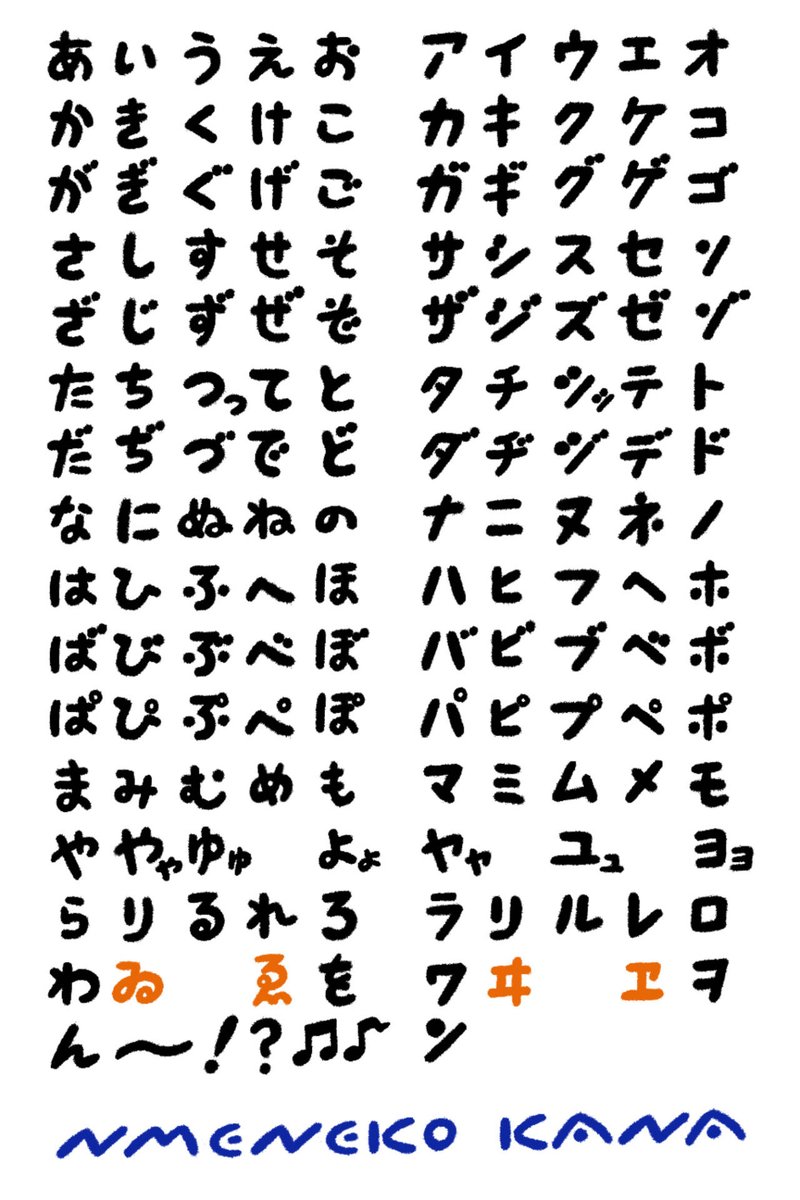 あいうえお アイウエオ
かきくけこ カキクケコ
がぎぐげご ガギグゲゴ
さしすせそ サシスセソ
ざじずぜぞ ザジズゼゾ
たちつってと タチツッテト
だぢづでど ダヂヅデド
なにぬねの ナニヌネノ
はひふへほ ハヒフヘホ
ばびぶべぼ バビブベボ
ぱぴぷぺぽ パピプペポ
まみむめも マミムメモ
ややゃゆゅよょ ヤャユュヨョ
らりるれろ ラリルレロ
わゐゑを ワヰヱヲ
ん〜!?♫♪ ン
NMENEKO KANA